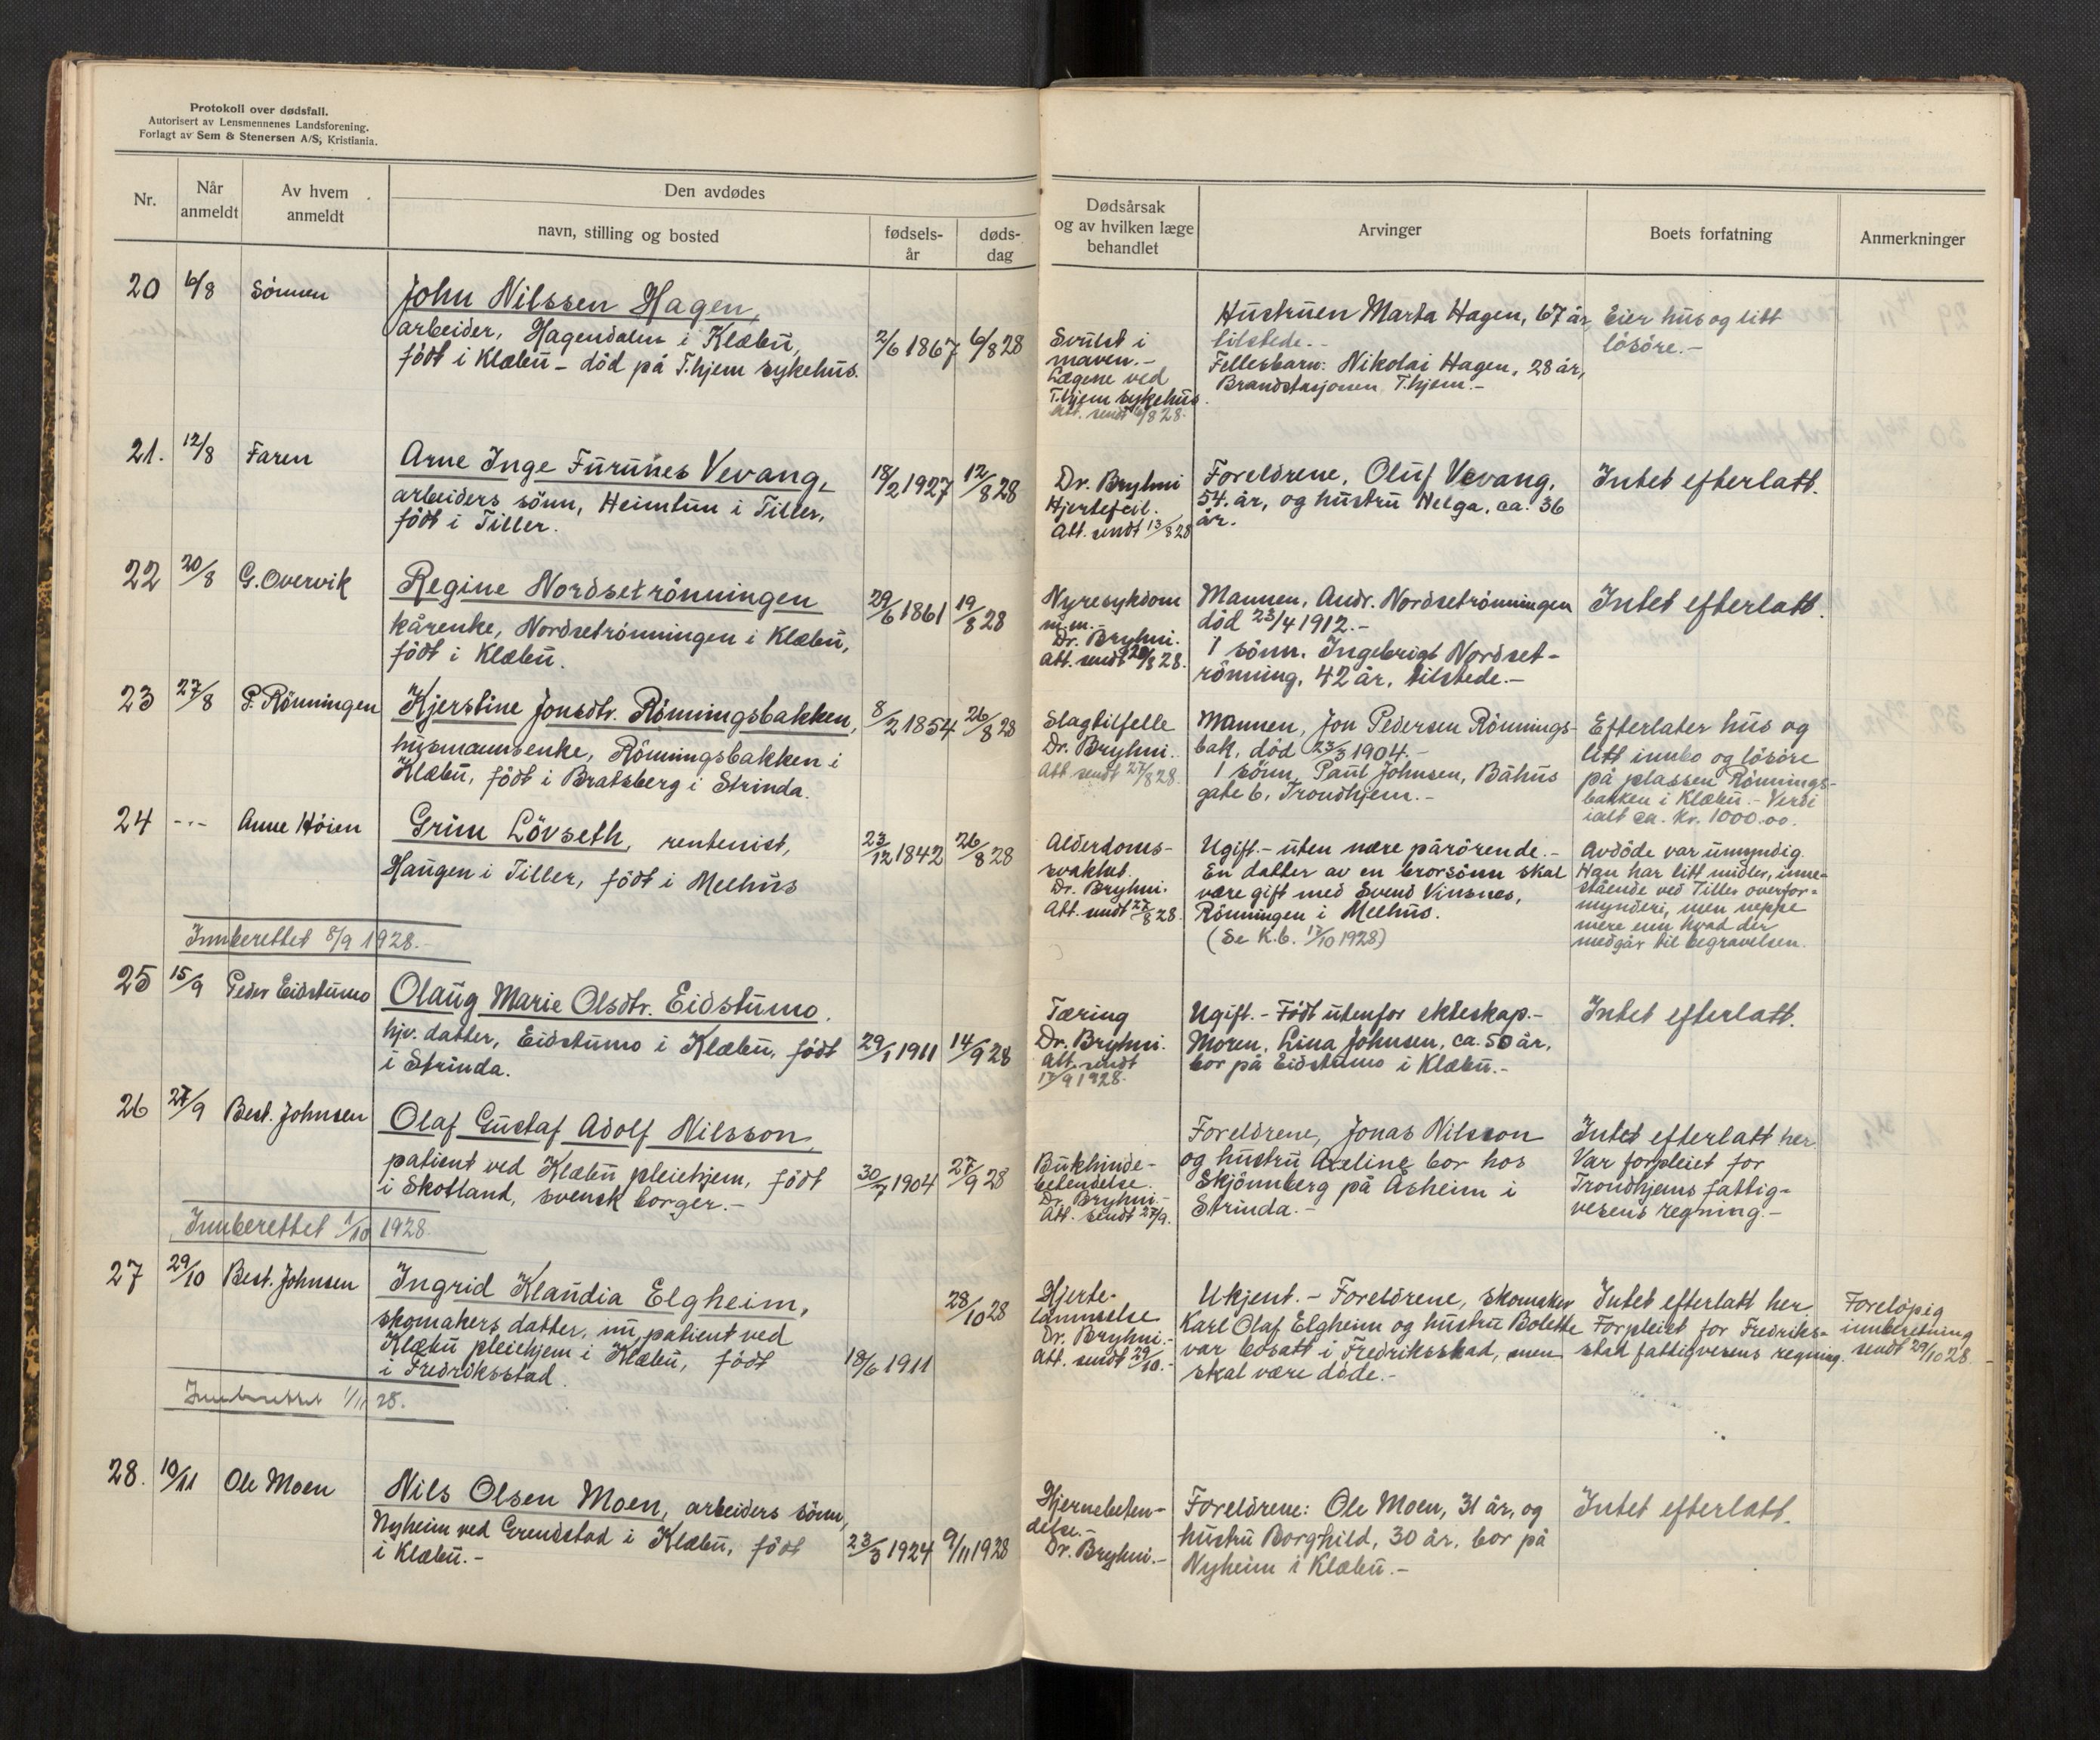 Protokoll over dødsfall.
Autorisert av Lensmennenes Landsforening.
Forlagt av Sem & Stenersen A/S, Kristiania.
Nr.
Når anmeldt
Av hvem anmeldt
Den avdødes
navn, stilling og bosted
fødsels-år
døds-dag
Dødsårsak og av hvilken læge behandlet
Arvinger
Boets forfatning
Anmerkninger
20 6/8 Sönnen
John Nilssen Hagen,
arbeider, Hagendalen i Klæbu,
födt i Klæbu - död på T.hjem sykehus.
2/6 1867 6/8 28
Svulst i
maven.-
Lægene ved
T.hjem sykehus.
Att. sendt 6/8 28.
Hustruen Marta Hagen, 67 år,
tilstede.-
Fellesbarn: Nikolai Hagen, 28 år,
Brandstasjonen T.hjem.-
Eier hus og litt
lösöre.-
21. 12/8 Faren
Arne Inge Furunes Vevang,
arbeiders sönn, Heimtun i Tiller,
födt i Tiller.
18/2 1927 12/8 28
Dr. Bryhni
Hjertefeil.
Att. sendt 13/8 28
Foreldrene, Oluf Vevang,
54. år, og hustru Helga, ca. 36
år.
Intet efterlatt.
22 20/8 G. Overvik
Regine Nordsetrönningen
kårenke, Nordsetrönningen i Klæbu,
födt i Klæbu.
29/6 1861 19/8 28
Nyresykdom
m.m.-
Dr. Bryhni.
Att. sendt 20/8 28.
Mannen, Andr. Nordsetrönningen
död 23/4 1912.-
1 sönn. Ingebrigt Nordset-
rönning, 42 år, tilstede.-
Intet efterlatt.
23 27/8 P. Rönningen
Kjerstine Jonsdtr. Rönningsbakken,
husmannsenke, Rönningsbakken i
Klæbu, födt i Bratsberg i Strinda.
8/2 1854 26/8 28
Slagtilfelle
Dr. Bryhni.
Att. sendt 27/8 28.
Mannen, Jon Pedersen Rönnings-
bak, död 23/3 1904.-
1 sönn, Paul Johnsen, Båhus
gate 6, Trondhjem.-
Efterlater hus og
litt innbo og lösöre
på plassen Rönnings-
bakken i Klæbu.- Verdi
ialt ca. Kr. 1000.00.
24 -"- Anne Höien
Grim Lövseth, rentenist,
Haugen i Tiller, födt i Melhus
23/12 1842 26/8 28
Alderdoms-
svakhet.
Dr. Bryhni.
Att. sendt 27/8 28.
Ugift.- uten nære pårörende.-
En datter av en brorsönn skal
være gift med Svend Vinsnes,
Rönningen i Melhus.
(Se K.b. 17/10 1928)
Avdöde var umyndig.
Han har litt midler, inne-
stående ved Tiller overfor-
mynderi, men neppe
mere enn hvad der
medgår til begravelsen.
Innberettet 8/9 1928.-
25 15/9 Peder Eidstumo
Olaug Marie Olsdtr. Eidstumo.
hjv. datter, Eidstumo i Klæbu, födt
i Strinda.
29/1 1911 14/9 28
Tæring
Dr. Bryhni.
Att. sendt
17/9 1928.
Ugift.- Födt utenfor ekteskap.-
Moren, Lina Johnsen, ca. 50 år,
bor på Eidstumo i Klæbu.-
Intet efterlatt.
26 27/9 Best. Johnsen
Olaf Gustaf Adolf Nilsson,
patient ved Klæbu pleiehjem, födt
i Skotland, svensk borger.-
30/7 1904 27/9 28
Bukhinde-
betendelse.
Dr. Bryhni.-
Att. sendt 27/9.
Foreldrene, Jonas Nilsson
og hustru Axeline bor hos
Skjönnberg på Åsheim i
Strinda.-
Intet efterlatt her
Var forpleiet for
Trondhjems fattig-
vesens regning.-
Innberettet 1/10 1928.
27 29/10 Best. Johnsen
Ingrid Klaudia Elgheim,
skomakers datter, nu patient ved
Klæbu pleiehjem i Klæbu, födt
i Fredriksstad.
18/6 1911 28/10 28
Hjerte-
lammelse
Dr. Bryhni.-
Att. sendt 29/10.-
Ukjent.- Foreldrene, skomaker
Karl Olaf Elgheim og hustru Bolette
var bosatt i Fredriksstad, men
skal være döde.-
Intet efterlatt her
Forpleiet for Fredriks-
stad fattigvesens regning.
Forelöpig
innberetning
sendt 29/10 28.
Innberettet 1/11 28.
28. 10/11 Ole Moen
Nils Olsen Moen, arbeiders sönn,
Nyheim ved Grendstad i Klæbu, födt
i Klæbu.-
23/3 1924 9/11 1928
Hjernebeten-
delse.-
Dr. Bryhni.-
Foreldrene: Ole Moen, 31 år, og
hustru Borghild, 30 år, bor på
Nyheim i Klæbu.-
Intet efterlatt.